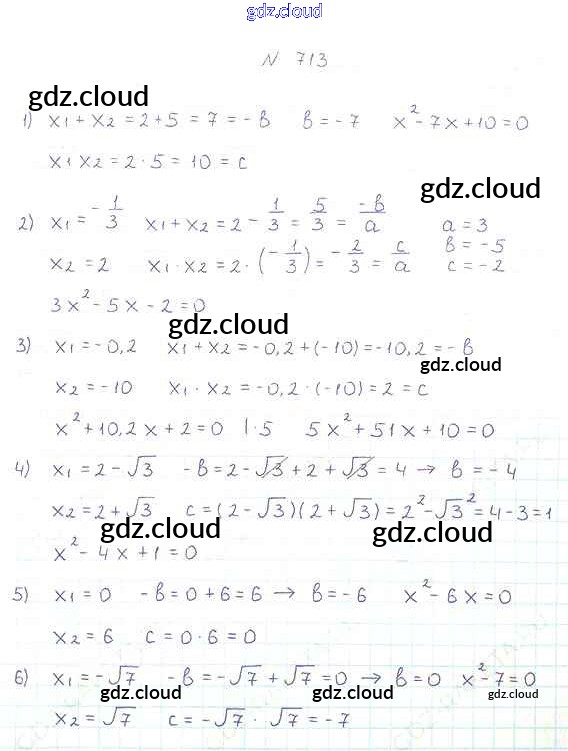 gdz.cloud
N 713
gdz.cloud
1) x₁ + x₂ = 2 + 5 = 7 = - в в = - 7 x² - 7x + 10 = 0
x₁ x₂ = 2 · 5 = 10 = c
gdz.cloud
2) x₁ = - 1/3 x₁ + x₂ = 2 - 1/3 = 5/3 = -в/a a = 3
в = - 5
x₂ = 2 x₁ · x₂ = 2 · (- 1/3) = - 2/3 = c/a c = - 2
3x² - 5x - 2 = 0
gdz.cloud
3) x₁ = - 0,2 x₁ + x₂ = - 0,2 + (- 10) = - 10,2 = - в
gdz.cloud
x₂ = - 10 x₁ · x₂ = - 0,2 · (- 10) = 2 = c
x² + 10,2 x + 2 = 0 | · 5 5x² + 51x + 10 = 0
4) x₁ = 2 - √3 - в = 2 - √3 + 2 + √3 = 4 → в = - 4
x₂ = 2 + √3 c = (2 - √3)(2 + √3) = 2² - √3² = 4 - 3 = 1
gdz.cloud gdz.cloud
x² - 4x + 1 = 0
5) x₁ = 0 - в = 0 + 6 = 6 → в = - 6 x² - 6x = 0
x₂ = 6 c = 0 · 6 = 0
6) x₁ = - √7 - в = - √7 + √7 = 0 → в = 0 x² - 7 = 0
gdz.cloud gdz.cloud gdz.cloud
x₂ = √7 c = - √7 · √7 = - 7